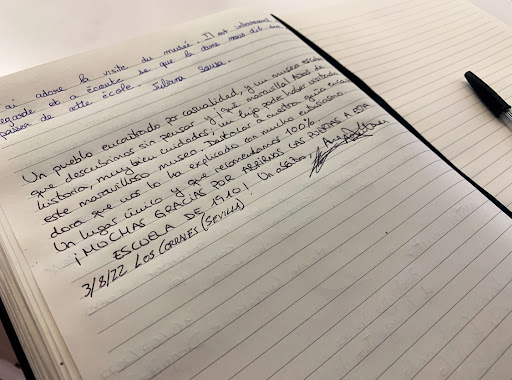 ai adoré la visite du musée. Il est intéressant
regarde et a écouté se que la dame nous dit sur
passer de cette école. Juliana Sousa.
Un pueblo encontrado por casualidad, y un museo escuela
que descubrimos sin pensar y ¡qué maravilla! Años de
historia, muy bien cuidados, un lujo poder haber visitado
este maravilloso museo. Destacar a nuestra guía encanta
dora que nos lo ha explicado con mucho entusiasmo.
Un lugar único y que recomendamos 100%
¡MUCHAS GRACIAS POR ABRIRNOS LAS PUERTAS A ESTA
ESCUELA DE 1910! Un abrazo,
3/8/22 LOS CORRALES (SEVILLA)